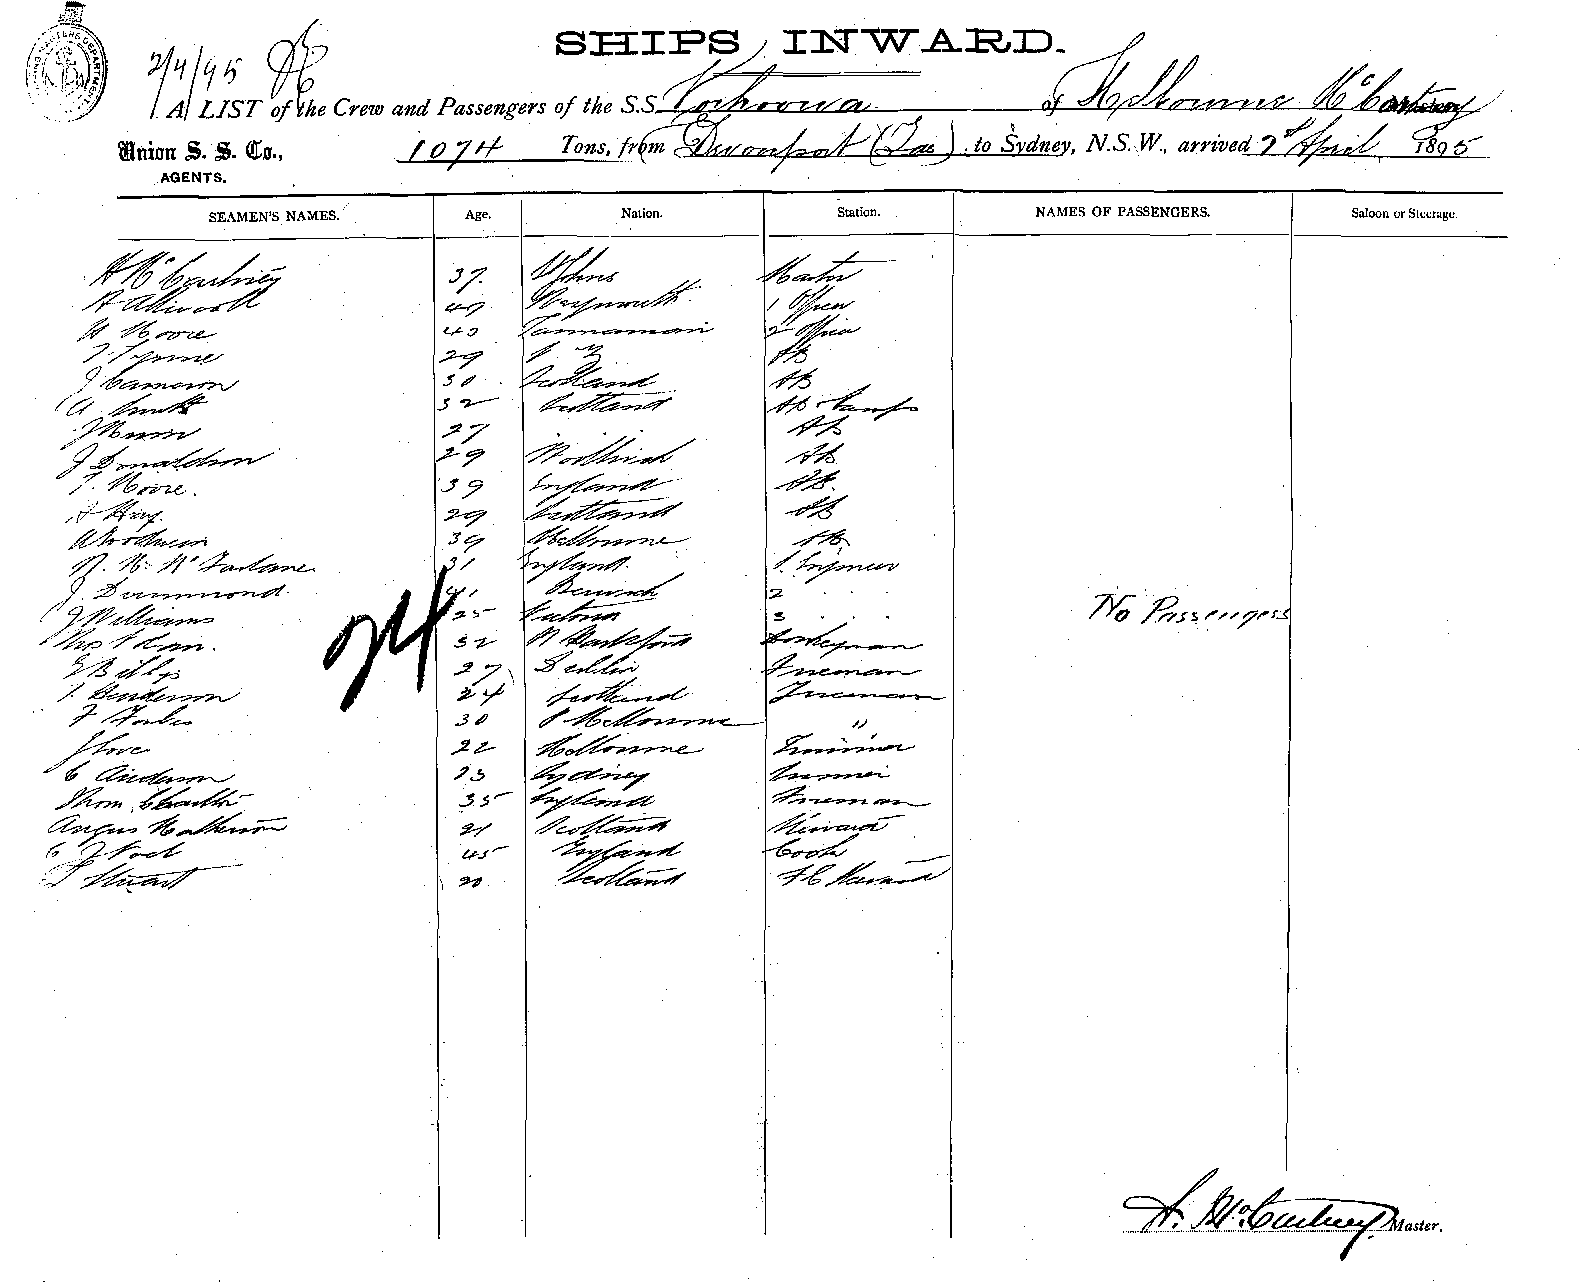 SHIPS INWARD.
2/4/95
A LIST of the Crew and Passengers of the S.S. of Melbourne Mc Cartney
Union S. S. Co., 1074 Tons, from Devonport (Tas) to Sydney, N.S.W., arrived 2d April 1895
AGENTS.
SEAMEN'S NAMES. Age. Nation. Station. NAMES OF PASSENGERS. Saloon or Steerage.
H Mc Cartney 37. St Johns Master
A Allwood 47 Weymouth 1 Officer
W Moore 40 Tasmanian 2 Officer
29 N Z AB
J Cameron 30 Scotland AB
A Smith 32 Scotland AB Lamps
27 " AB
J Donaldson 29 Woolwich AB
T. Moore. 39 England AB.
A King. 29 Scotland AB
39 Melbourne AB.
R. M. Mc Farlane 31 England. 1. Engineer
J. Drummond. 41 Berwick 2 "
J Williams 25 Victoria 3 "
No Passengers
32 Donkeyman
27 Dublin Fireman
Henderson 24 Scotland Fireman
F Forbes 30 P Melbourne "
J Love 22 Melbourne Trimmer
C Anderson 23 Sydney Trimmer
Thom 35 England Fireman
Angus Matheson 21 Scotland Steward
C J Noel 45 England Cook
Stuart 20 Scotland F C Steward
24
H. McCartney Master.